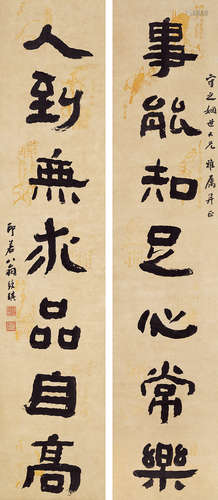 守之姻世大兄雅属并正
事能知足心常樂
人到無求品自高
卯若八翁